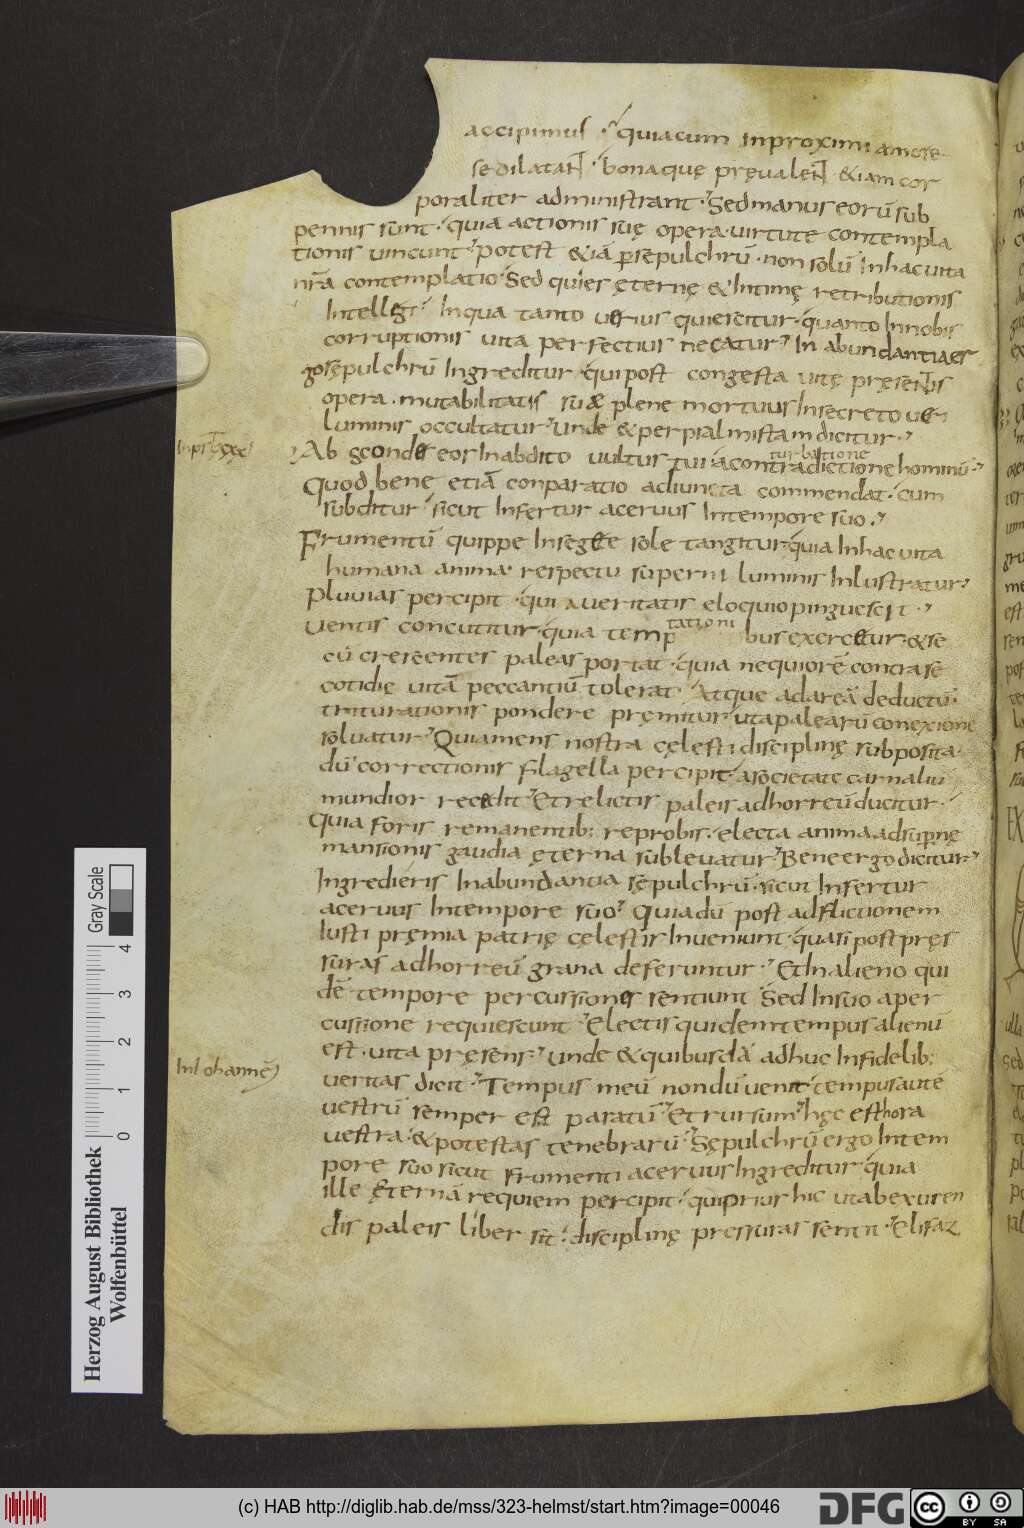 accipimus · quia cum in proximi amore
se dilatant · bona que prevalent & iam cor
poraliter administrant · Sed manus eorū sub
pennis sunt · quia actionis suę opera · virtute contempla
tionis vincunt · potest & iā p sepulchrū · non solū In hac vita
nrā contemplatio · Sed quies ęternę & Intimę retributionis
Intellegi · In qua tanto verius quiescitur · quanto In nobis
corruptionis vita perfectius necatur · In abundantia er
go sepulchrū Ingreditur qui post congesta vitę pręsentis
opera · mutabilitatis suę plene mortuus In secreto veri
luminis occultatur · unde & per psalmistam dicitur ·
Inps xxx
Abscondes eos In abdito vultus tui · a conturbatione hominū ·
Quod bene etiā conparatio adiuncta commendat · cum
subditur sicut Infertur acervus In tempore suo ·
Frumentū quippe In segete sole tangitur · quia In hac vita
humana anima · respectu superni luminis Inlustratur ·
pluvias percipit · quia veritatis eloquio pinguescit ·
ventis concutitur · quia temptationibus exercetur · & se
cū crescentes paleas portat · quia nequiorē contra se
cotidię vitā peccantiū tolerat · Atque ad areā deductū
triturationis pondere pręmitur · ut a palearū conexione
solvatur · Quia mens nostra cęlesti disciplinę subposita ·
dū correctionis flagella percipit · a societate carnaliū
mundior recedit · Et relictis paleis ad horreū ducitur ·
quia foris remanentib: reprobis · electa anima ad supernę
mansionis gaudia ęterna sublevatur · Bene ergo dicitur
Ingredieris In abundantia sepulchrū · sicut Infertur
acervus In tempore suo · Quia dū post adflictionem
Iusti pręmia patrię cęlestis Inveniunt · quasi post pres
suras ad horreū grana deferuntur · Et In alieno qui
dē tempore percussiones sentiunt Sed In suo a per
cussione requiescunt · Electis quidem tempus alienū
est · vita pręsens · unde & quibusdā adhuc Infidelib:
In Iohannē
veritas dicit · Tempus meū nondū venit · tempus autē
vestrū semper est paratū · Et rursum hęc est hora
vestra · & potestas tenebrarū · Sepulchrū ergo In tem
pore suo sicut frumenti acervus Ingreditur · quia
ille ęternā requiem percipit · qui prius hic ut ab exuren
dis paleis liber sit · disciplinę pressuras sentit · Elifaz
Gray Scale
0 1 2 3 4
Herzog August Bibliothek
Wolfenbüttel
(c) HAB http://diglib.hab.de/mss/323-helmst/start.htm?image=00046
DFG
cc BY SA